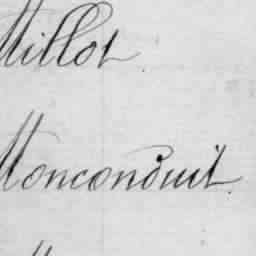 Millot
Monconduit